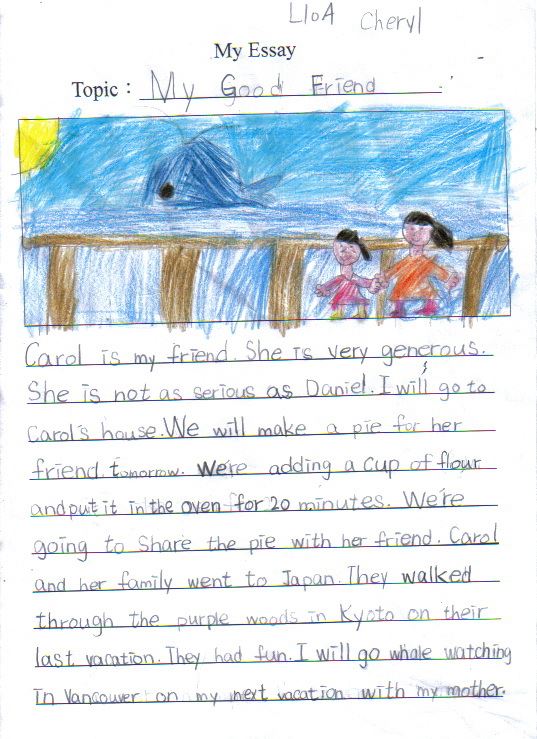 L10A Cheryl
My Essay
Topic : My Good Friend
Carol is my friend. She is very generous.
She is not as serious as Daniel. I will go to
Carol's house. We will make a pie for her
friend tomorrow. We're adding a cup of flour
and put it in the oven for 20 minutes. We're
going to share the pie with her friend. Carol
and her family went to Japan. They walked
through the purple woods in Kyoto on their
last vacation. They had fun. I will go whale watching
in Vancouver on my next vacation with my mother.